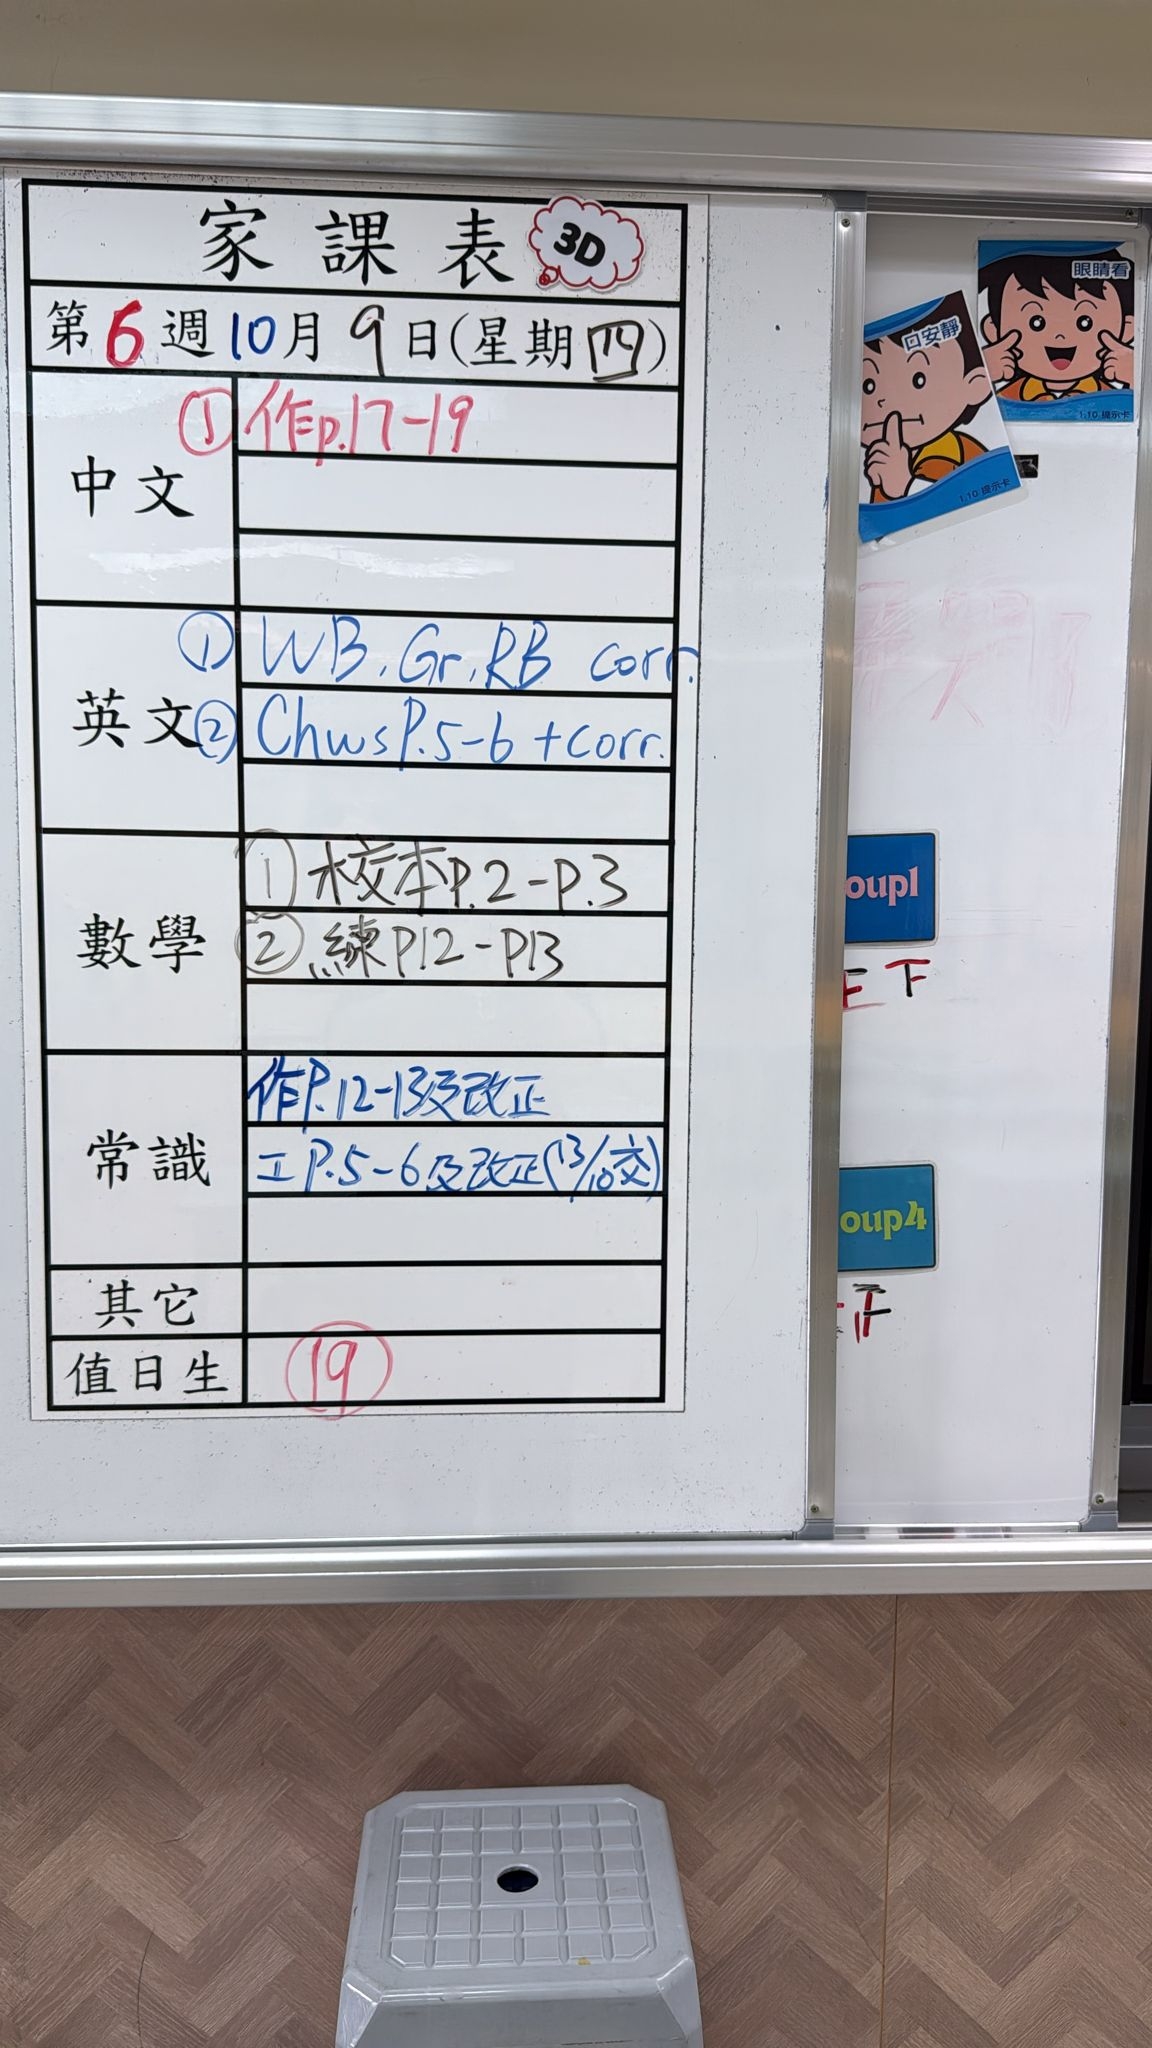 家課表
3D
第6週10月9日(星期四)
中文
① 作p.17-19
英文
① WB, Gr, RB corr.
② Chws P.5-6 + corr.
數學
① 校本P.2-P.3
② 練P12-P13
常識
作P.12-13及改正
工P.5-6及改正(13/10交)
其它
值日生
19
眼睛看
1.10 提示卡
口安靜
1.10 提示卡
oup1
正下
oup4